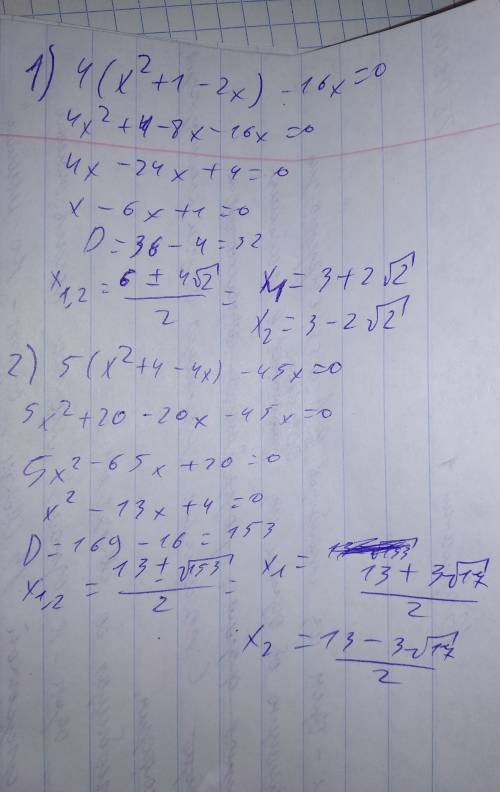 1) 4(x²+1-2x)-16x=0
4x²+4-8x-16x=0
4x-24x+4=0
x-6x+1=0
D=36-4=32
x₁,₂=(6±4√2)/2= x₁=3+2√2
x₂=3-2√2
2) 5(x²+4-4x)-45x=0
5x²+20-20x-45x=0
5x²-65x+20=0
x²-13x+4=0
D=169-16=153
x₁,₂=(13±√153)/2= x₁=(13+3√17)/2
x₂=(13-3√17)/2